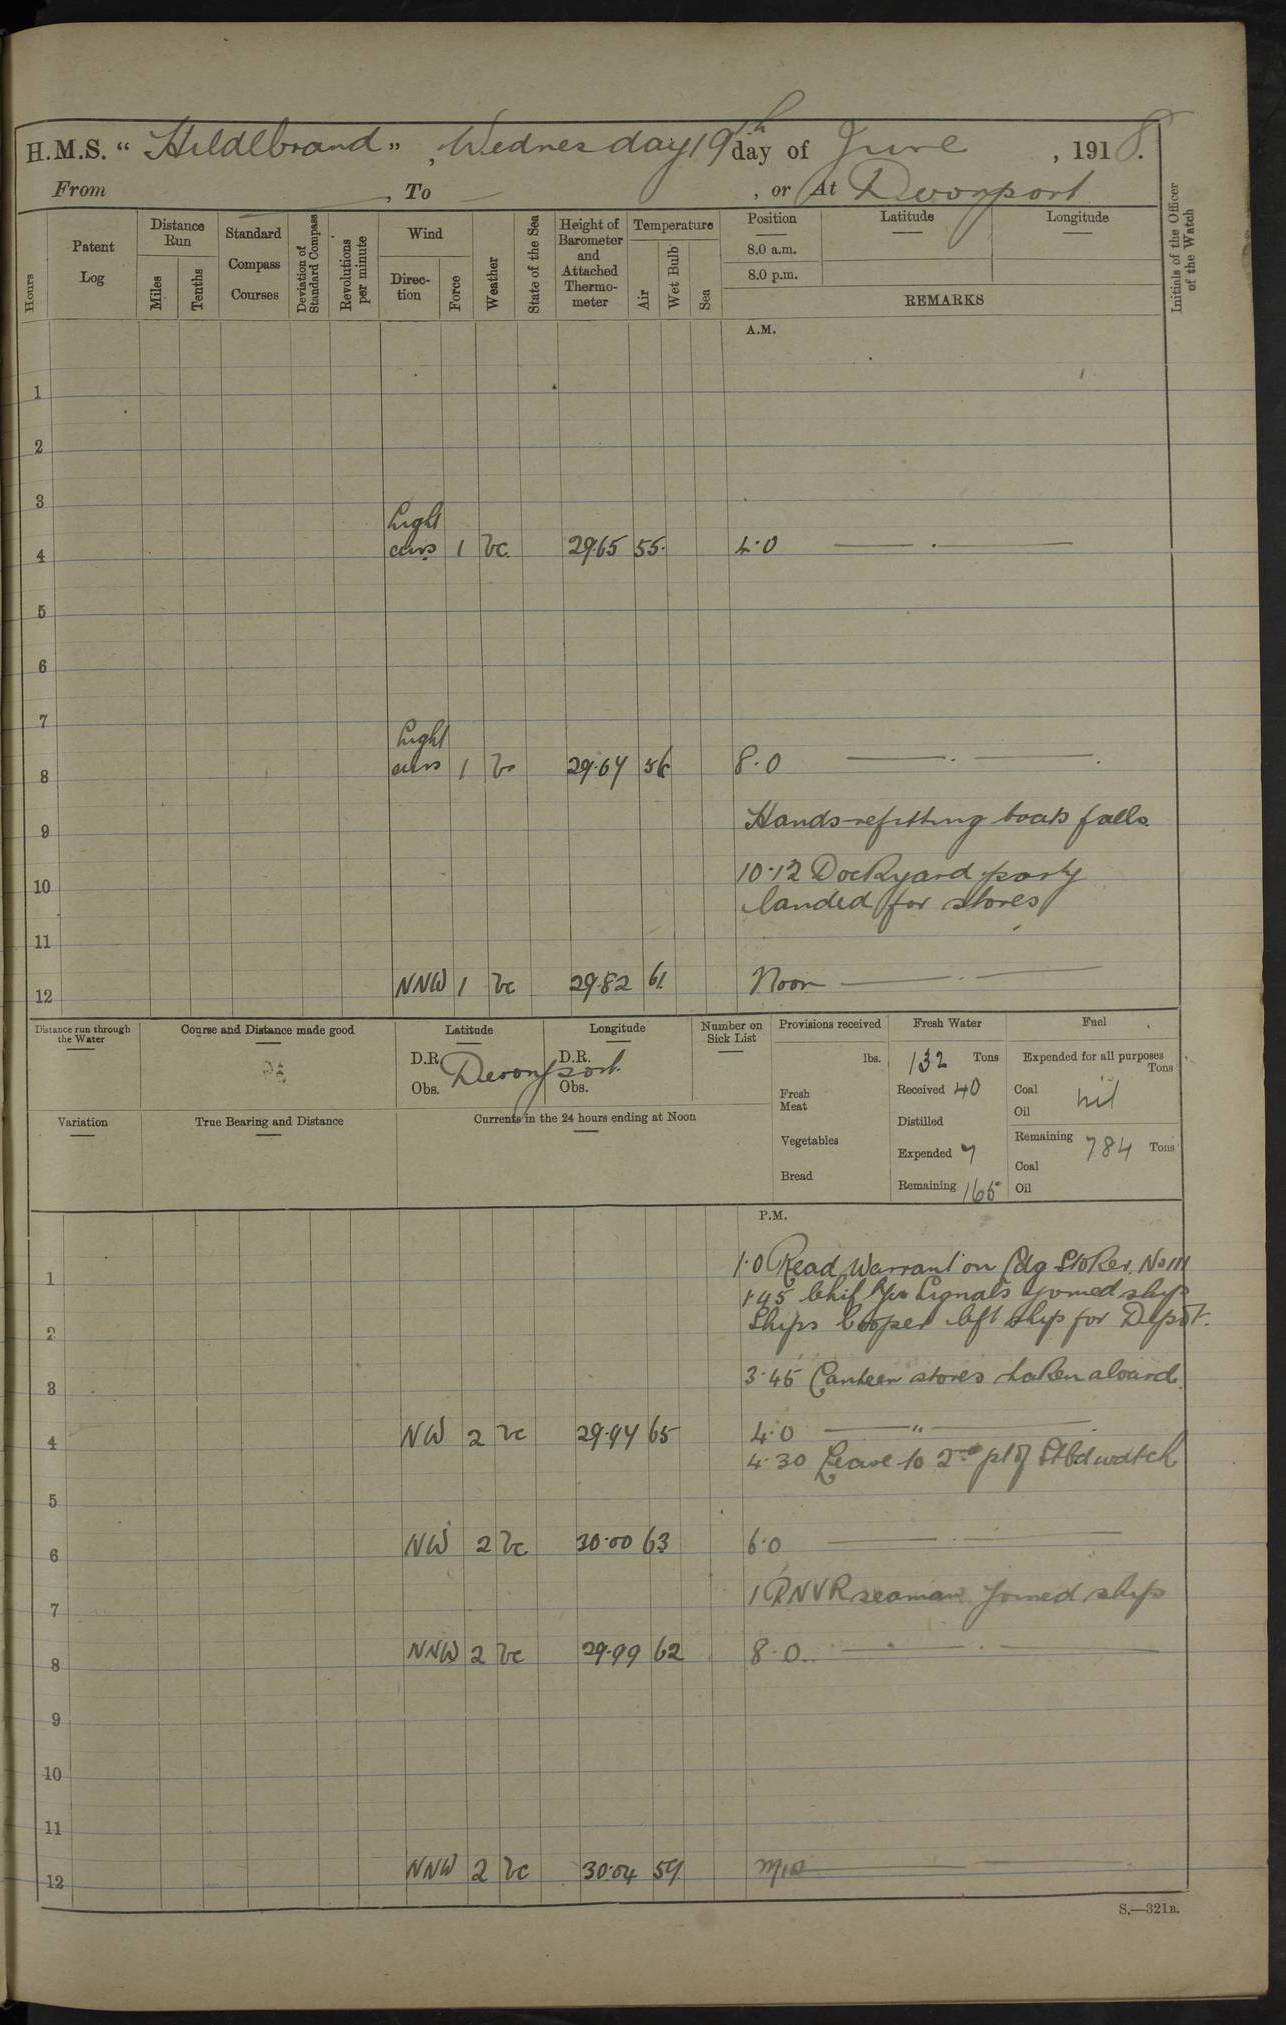 H.M.S. “ Hildebrand ” , Wednesday 19th day of June , 1918.
From , To , or At Devonport
Hours
Patent Log
Distance Run
Miles
Tenths
Standard Compass Courses
Deviation of Standard Compass
Revolutions per minute
Wind
Direction
Force
Weather
State of the Sea
Height of Barometer and Attached Thermometer
Temperature
Air
Wet Bulb
Sea
Position
8.0 a.m.
8.0 p.m.
Latitude
Longitude
REMARKS
Initials of the Officer of the Watch
A.M.
1
2
3
Light
4 airs 1 bc 29.65 55. 4.0
5
6
7
Light
8 airs 1 bc 29.67 56 8.0
Hands refitting boats falls
9
10.12 Dockyard party
10
landed for stores
11
12 NNW 1 bc 29.82 61 Noon
Distance run through the Water
Course and Distance made good
Latitude
D.R.
Obs.
Devonport
Longitude
D.R.
Obs.
Number on Sick List
Provisions received
lbs.
Fresh Meat
Vegetables
Bread
Fresh Water
132 Tons
Received 40
Distilled
Expended 7
Remaining 165
Fuel
Expended for all purposes
Tons
Coal
Oil
nil
Remaining 784 Tons
Coal
Oil
Variation
True Bearing and Distance
Currents in the 24 hours ending at Noon
P.M.
1.0 Read Warrant on Ldg Stoker. No 111
1
1.45 Chief Yeo Signals joined ship
Ships Cooper left ship for Depôt.
2
3.45 Canteen stores taken aboard.
3
4 NW 2 bc 29.94 65 4.0 "
4.30 Leave to 2nd pt of Stbd watch
5
6 NW 2 bc 30.00 63 6.0
1 RNVR seaman joined ship
7
8 NNW 2 bc 29.99 62 8.0
9
10
11
12 NNW 2 bc 30.04 59 Mid
S.—321B.